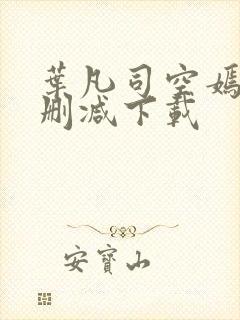 葉凡司空嫣
刪減下載
安寶山